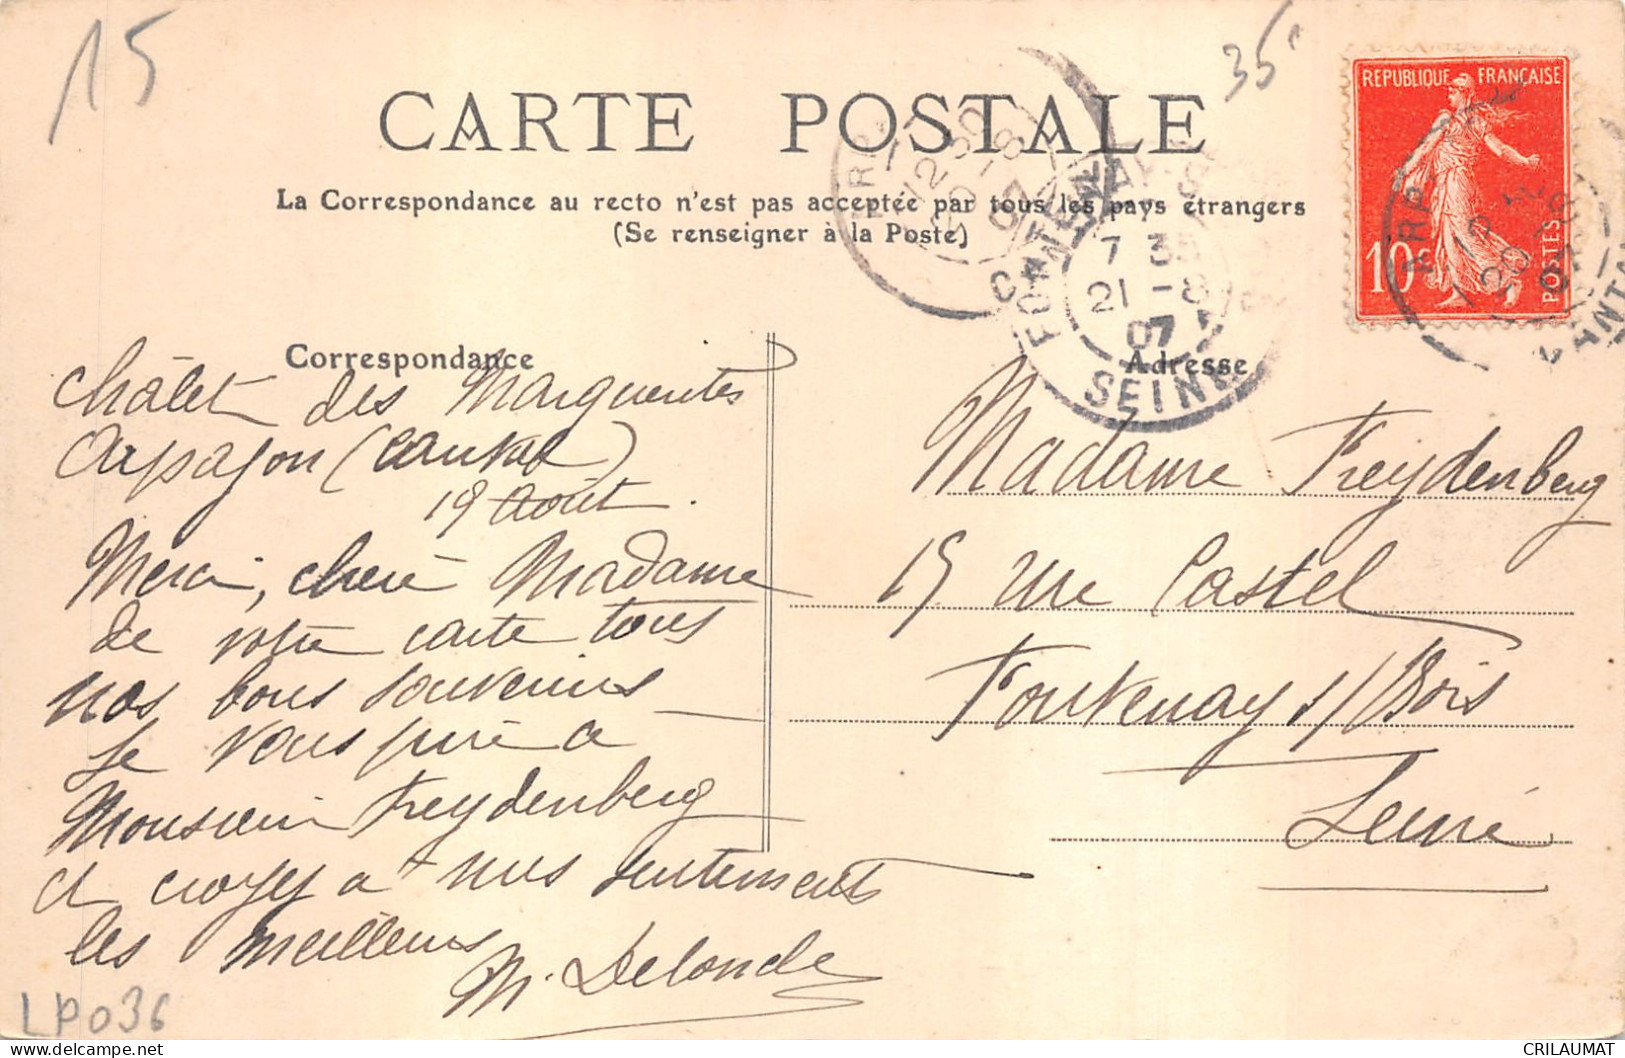 15
35c
CARTE POSTALE
La Correspondance au recto n'est pas acceptée par tous les pays étrangers
(Se renseigner à la Poste)
REPUBLIQUE FRANÇAISE
10c
POSTES
ARP
12
20
07
CANTAL
12 30
20 -8
07
CANTAL
FONTENAY-S
7 35
21 -8
07
SEINE
Correspondance
Châlet des Marguerites
Arpajon (Cantal)
19 Août
Merci, chère Madame
de votre carte tous
nos bons souvenirs
je vous prie à
Monsieur Freydenberg
et croyez à nos sentiments
les meilleurs
M. Delonde
Adresse
Madame Freydenberg
15 rue Castel
Fontenay s/Bois
Seine
LP036
delcampe.net
CRILAUMAT